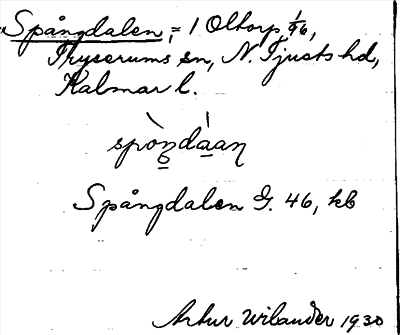 Spångdalen, = 1 Oltorp, 1/96,
Tryserums sn, N. Tjusts hd,
Kalmar l.
Spångdalen G. 46, kb
Artur Wilander 1930